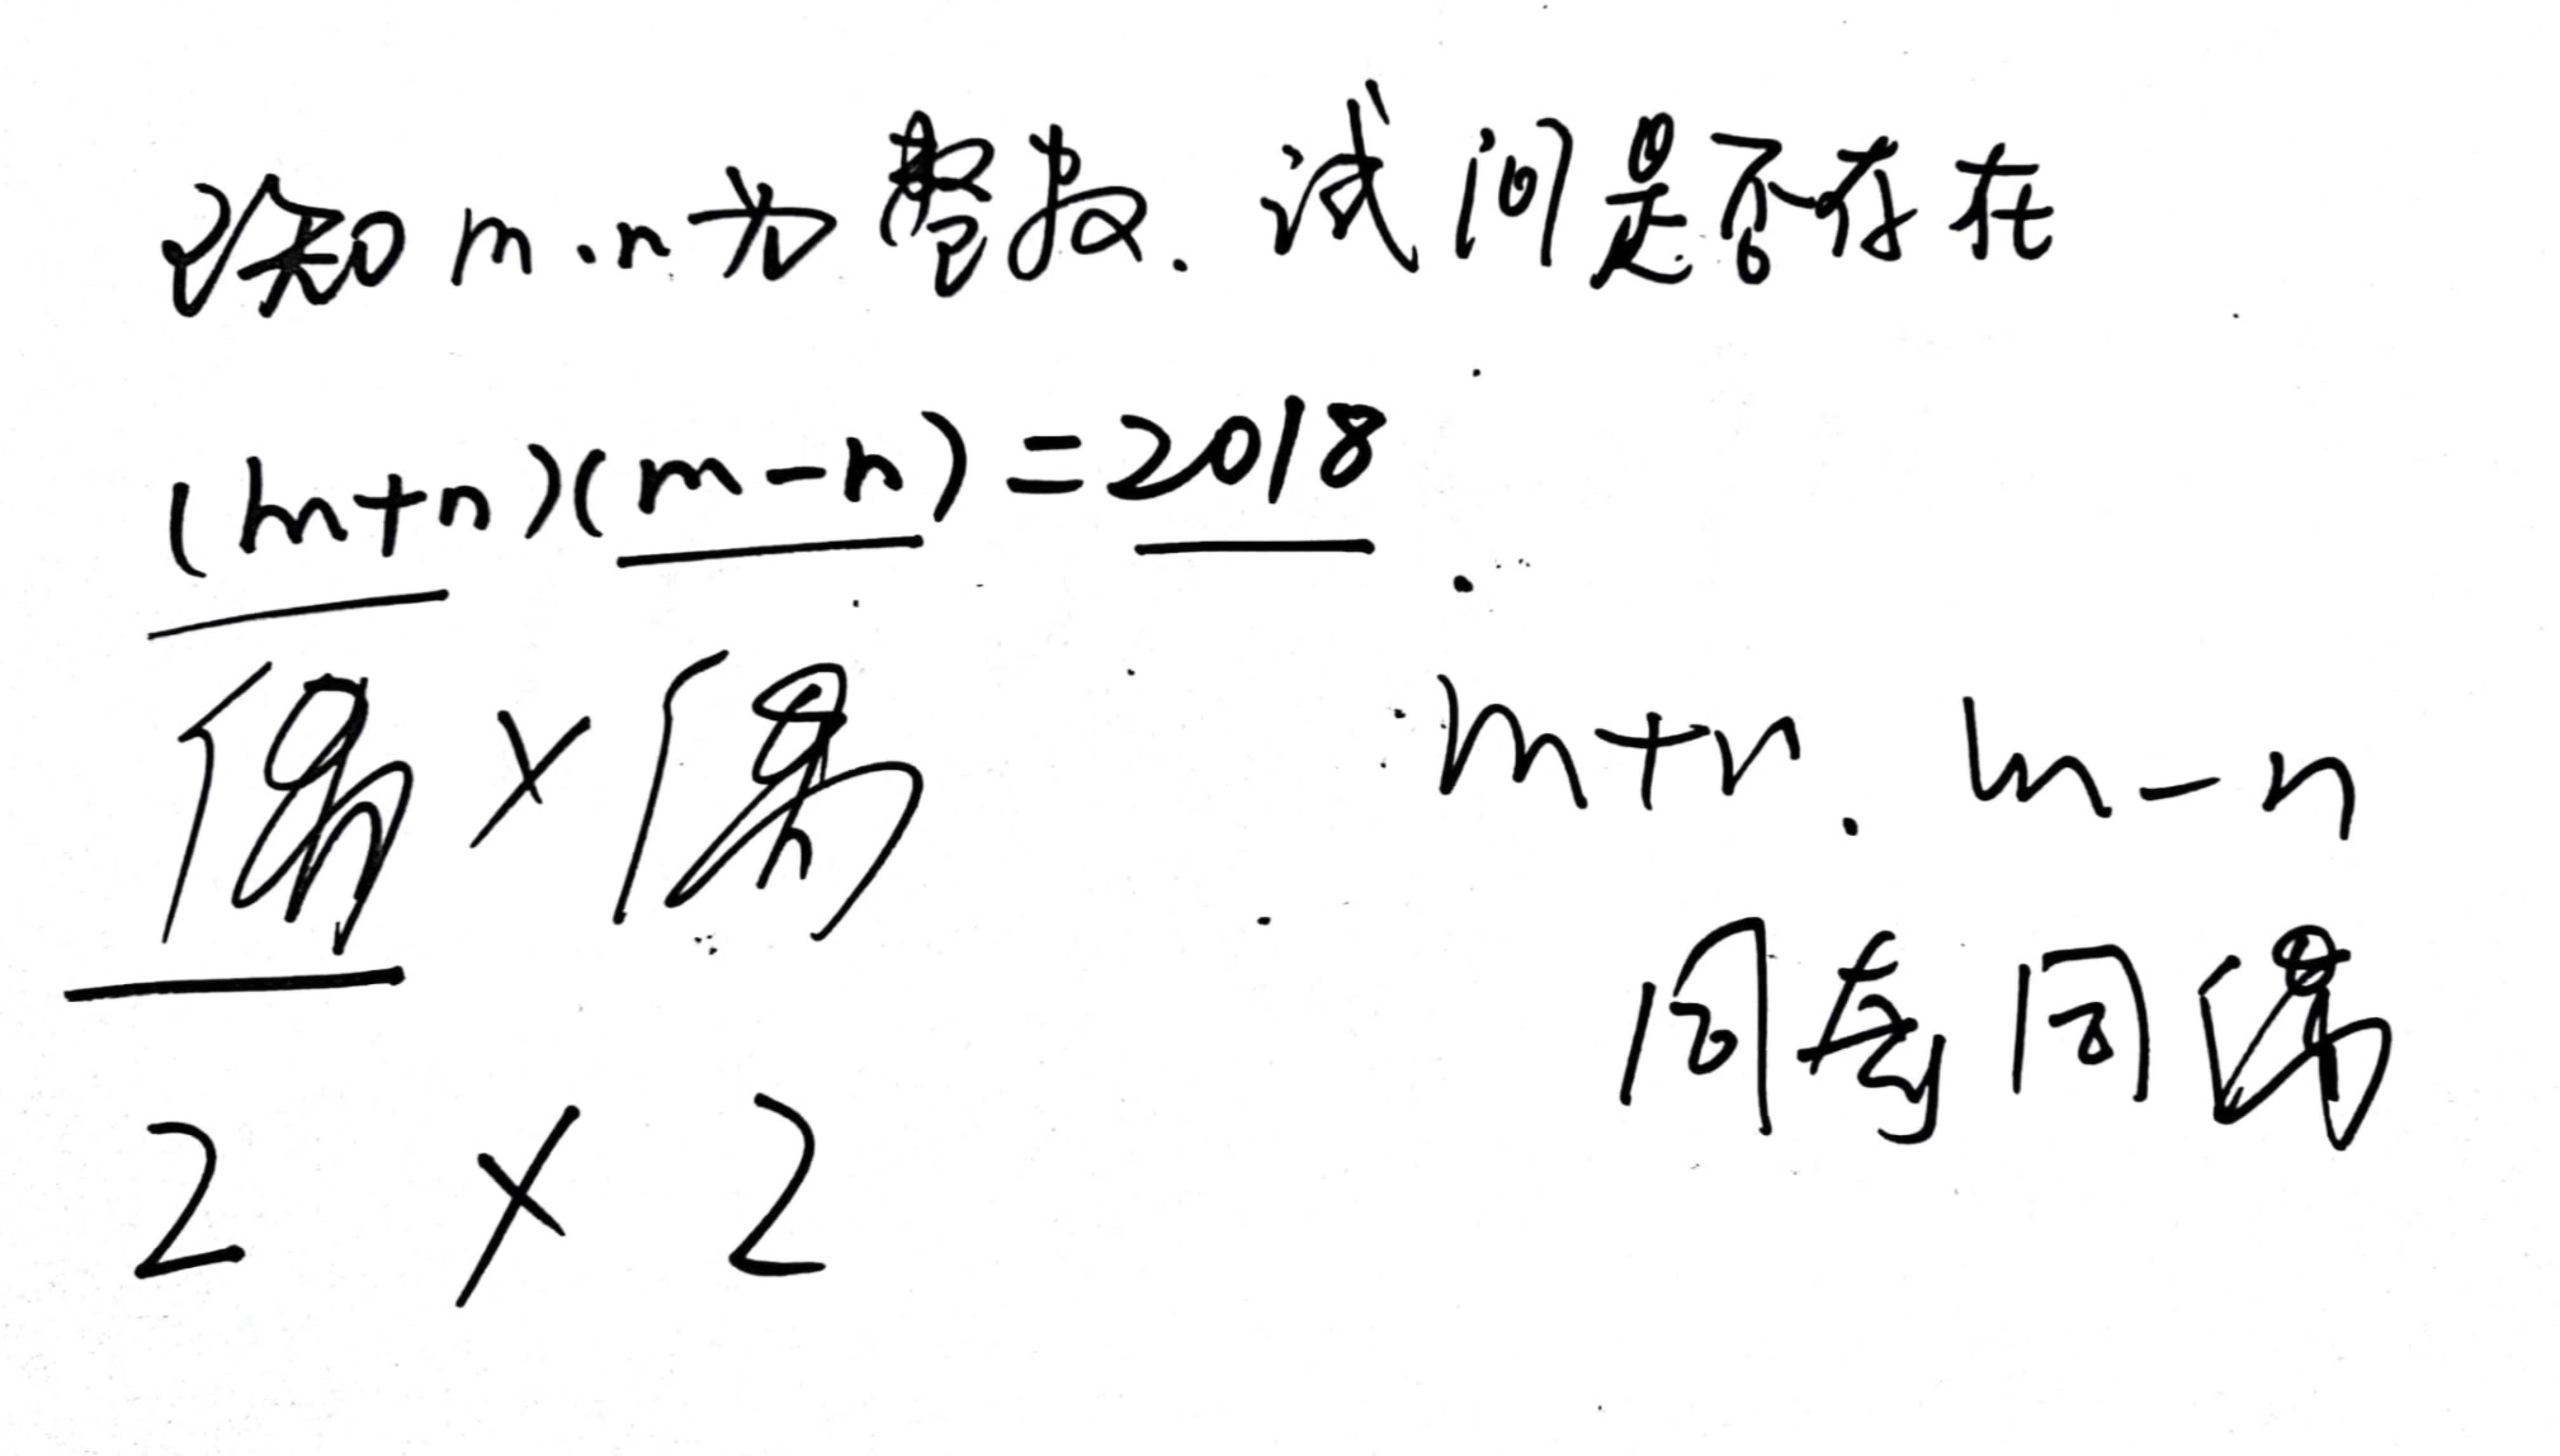 已知m.n为整数.试问是否存在
(m+n)(m-n)=2018.
偶×偶
m+n.m-n
同奇同偶
2×2